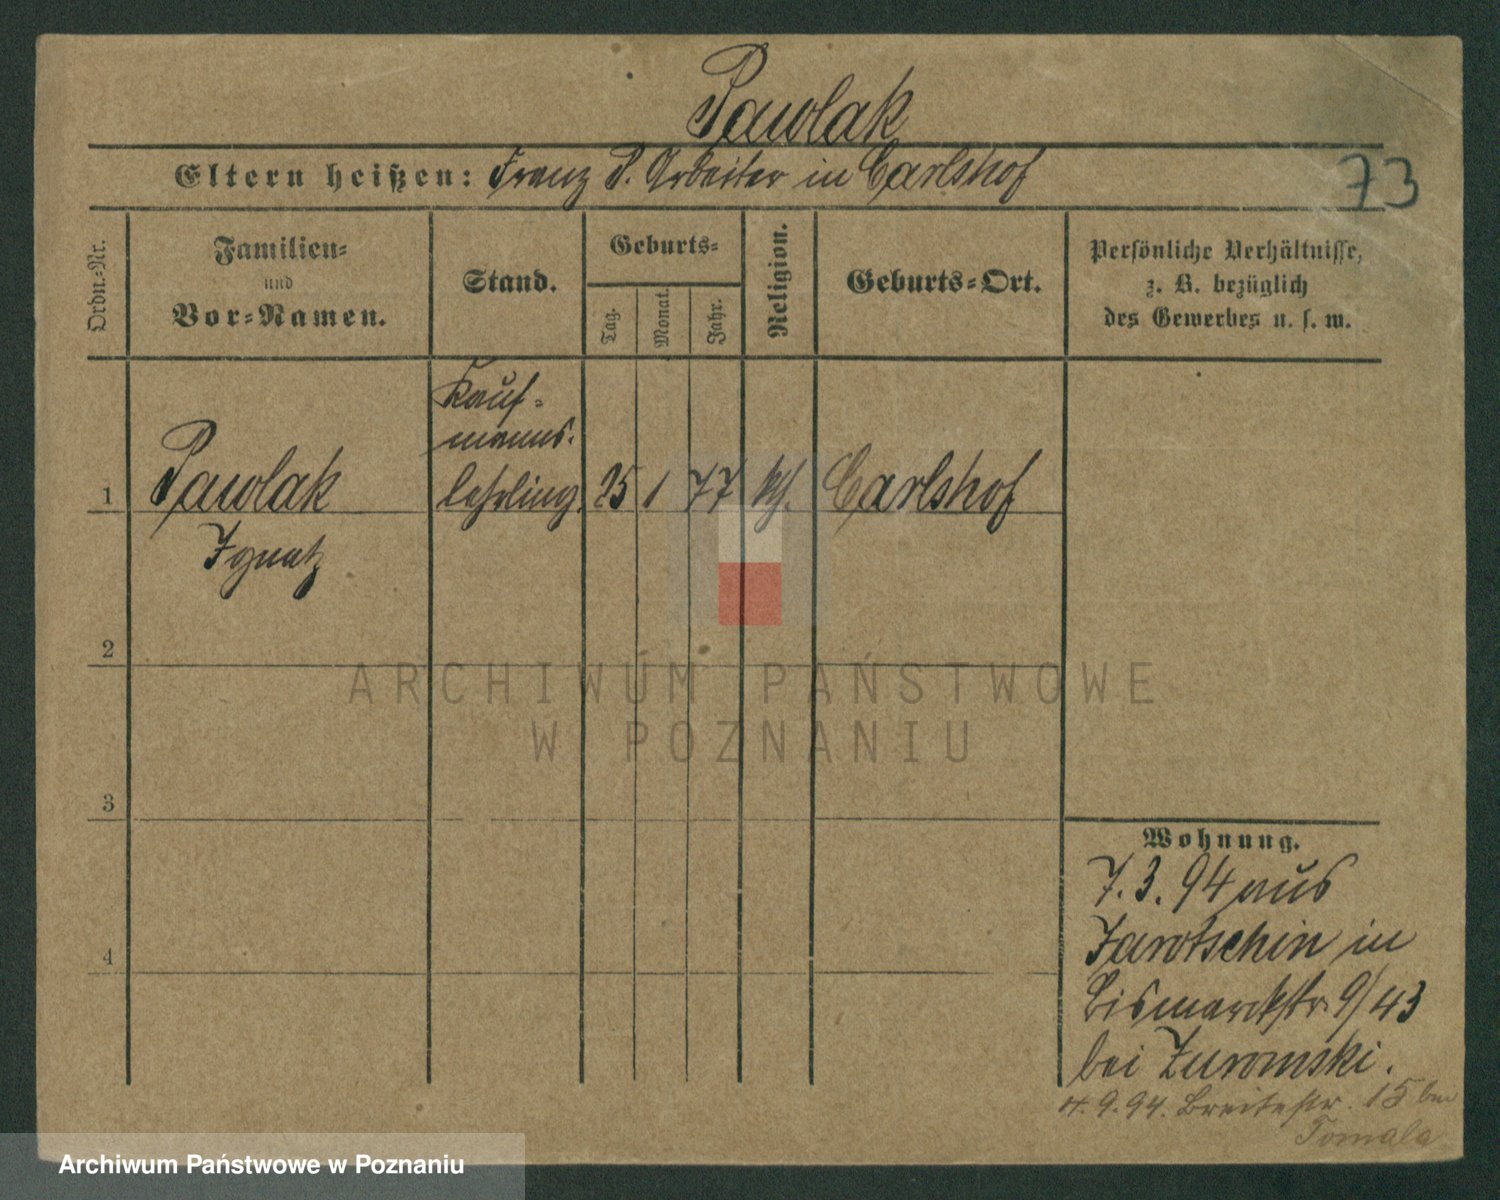 Pawlak
Eltern heißen: Franz P. Arbeiter in Carlshof
73
Ordn.-Nr.
Familien-
und
Vor-Namen.
Stand.
Geburts-
Tag.
Monat.
Jahr.
Religion.
Geburts-Ort.
Persönliche Verhältnisse,
z. B. bezüglich
des Gewerbes u. s. w.
Kauf-
manns-
1 Pawlak lehrling 25 1 77 kth. Carlshof
Ignatz
2
3
4
ARCHIWUM PAŃSTWOWE
W POZNANIU
Wohnung.
7.3.94 aus
Jarotschin in
Bismarckstr. 9/43
bei Zuromski.
4.9.94. Breitestr. 15 bei
Tomala
Archiwum Państwowe w Poznaniu